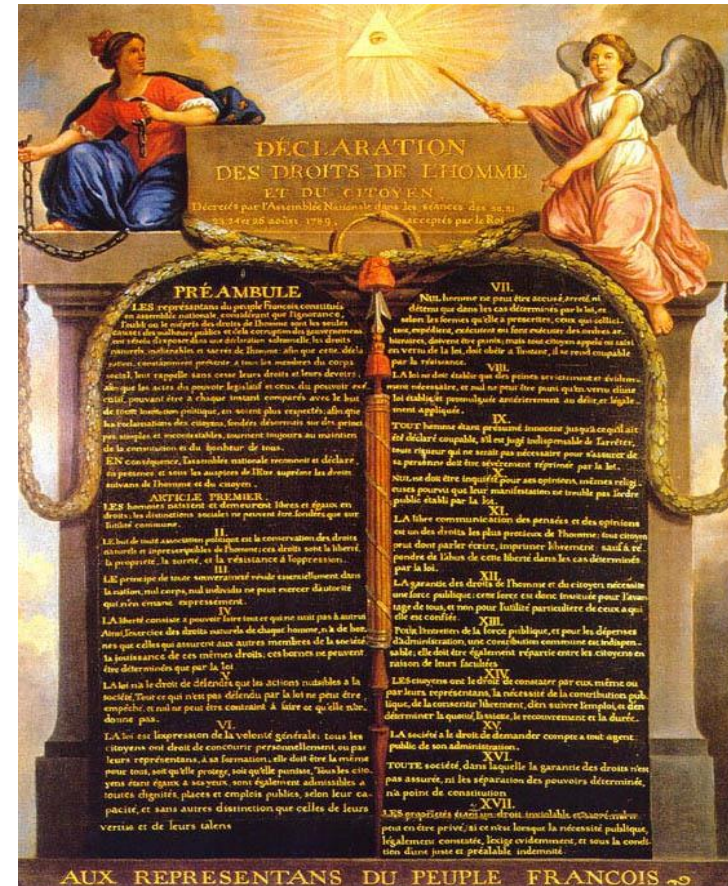 DÉCLARATION
DES DROITS DE L'HOMME
ET DU CITOYEN,
Décretés par l'Assemblée Nationale dans les séances des 20, 21
23, 24 et 26 août 1789, acceptés par le Roi
PRÉAMBULE
LES représentans du peuple François constitués
en assemblée nationale, considérant que l'ignorance,
l'oubli ou le mépris des droits de l'homme sont les seules
causes des malheurs publics et de la corruption des gouvernemens
ont résolu d'exposer dans une déclaration solemnelle, les droits
naturels, inaliénables et sacrés de l'homme: afin que cette décla
ration, constamment présente a tous les membres du corps
social, leur rappelle sans cesse leurs droits et leurs devoirs
afin que les actes du pouvoir legislatif et ceux du pouvoir exé
cutif, pouvant être à chaque instant comparés avec le but
de toute institution politique, en soient plus respectés; afin que
les reclamations des citoyens, fondées désormais sur des princi
pes simples et incontestables, tournent toujours au maintien
de la constitution et du bonheur de tous.
EN conséquence, l'assemblée nationale reconnoit et déclare,
en presence et sous les auspices de l'Etre suprême les droits
suivans de l'homme et du citoyen.
ARTICLE PREMIER.
LES hommes naissent et demeurent libres et égaux en
droits; les distinctions sociales ne peuvent être fondées que sur
l'utilité commune.
II.
LE but de toute association politique est la conservation des droits
naturels et imprescriptibles de l'homme; ces droits sont la liberté,
la propriété, la sureté, et la résistance à l'oppression.
III.
LE principe de toute souveraineté réside essentiellement dans
la nation, nul corps, nul individu ne peut exercer d'autorité
qui n'en émane expressement.
IV.
LA liberté consiste a pouvoir faire tout ce qui ne nuit pas à autrui
Ainsi, l'exercice des droits naturels de chaque homme, n'a de bor-
nes que celles qui assurent aux autres membres de la société
la jouissance de ces mêmes droits; ces bornes ne peuvent
être déterminées que par la loi
V.
LA loi n'a le droit de défendre que les actions nuisibles à la
société. Tout ce qui n'est pas défendu par la loi ne peut être
empêché, et nul ne peut être contraint à faire ce qu'elle n'or-
donne pas.
VI.
LA loi est l'expression de la volonté générale; tous les
citoyens ont droit de concourir personnellement, ou par
leurs représentans, à sa formation; elle doit être la même
pour tous, soit qu'elle protege, soit qu'elle punisse, Tous les cito
yens étant égaux à ses yeux, sont également admissibles à
toutes dignités, places et emplois publics, selon leur ca-
pacité, et sans autres distinction que celles de leurs
vertus et de leurs talens
VII.
NUL homme ne peut être accusé, arreté, ni
détenu que dans les cas déterminés par la loi, et
selon les formes qu'elle a prescrites, ceux qui sollici-
tent, expédient, exécutent ou font exécuter des ordres ar-
bitraires, doivent être punis; mais tout citoyen appelé ou saisi
en vertu de la loi, doit obéir a l'instant, il se rend coupable
par la résistance.
VIII.
LA loi ne doit établir que des peines strictement et évidem-
ment nécessaire, et nul ne peut être puni qu'en vertu d'une
loi établie et promulguée antérierement au délit, et légale
ment appliquée.
IX.
TOUT homme étant présumé innocent jusqu'à ce qu'il ait
été déclaré coupable, s'il est jugé indispensable de l'arrêter,
toute rigueur qui ne serait pas nécessaire pour s'assurer de
sa personne doit être sévèrement réprimée par la loi.
X.
NUL ne doit être inquiété pour ses opinions, mêmes religi
euses pourvu que leur manifestation ne trouble pas l'ordre
public établi par la loi.
XI.
LA libre communication des pensées et des opinions
est un des droits les plus precieux de l'homme; tout citoyen
peut donc parler écrire, imprimer librement: sauf à ré-
pondre de l'abus de cette liberté dans les cas déterminés
par la loi.
XII.
LA garantie des droits de l'homme et du citoyen nécessite
une force publique; cette force est donc instituée pour l'avan
tage de tous, et non pour l'utilité particuliere de ceux a qui
elle est confiée.
XIII.
Pour l'entretien de la force publique, et pour les dépenses
d'administration, une contribution commune est indispen-
sable; elle doit être également répartie entre les citoyens en
raison de leurs facultées
XIV.
LES citoyens ont le droit de constater par eux même ou
par leurs représentans, la nécessité de la contribution pub-
lique, de la consentir librement, d'en suivre l'emploi, et d'en
déterminer la quotité, l'assiete, le recouvrement et la durée.
XV.
LA société a le droit de demander compte a tout agent
public de son administration.
XVI.
TOUTE société, dans laquelle la garantie des droits n'est
pas assurée, ni les séparation des pouvoirs déterminée,
n'a point de constitution
XVII.
LES propriétés étant un droit inviolable et sacré, nul ne
peut en être privé, si ce n'est lorsque la nécessité publique,
légalement constatée, l'exige evidemment, et sous la condi-
tion d'une juste et préalable indemnité.
AUX REPRESENTANS DU PEUPLE FRANCOIS